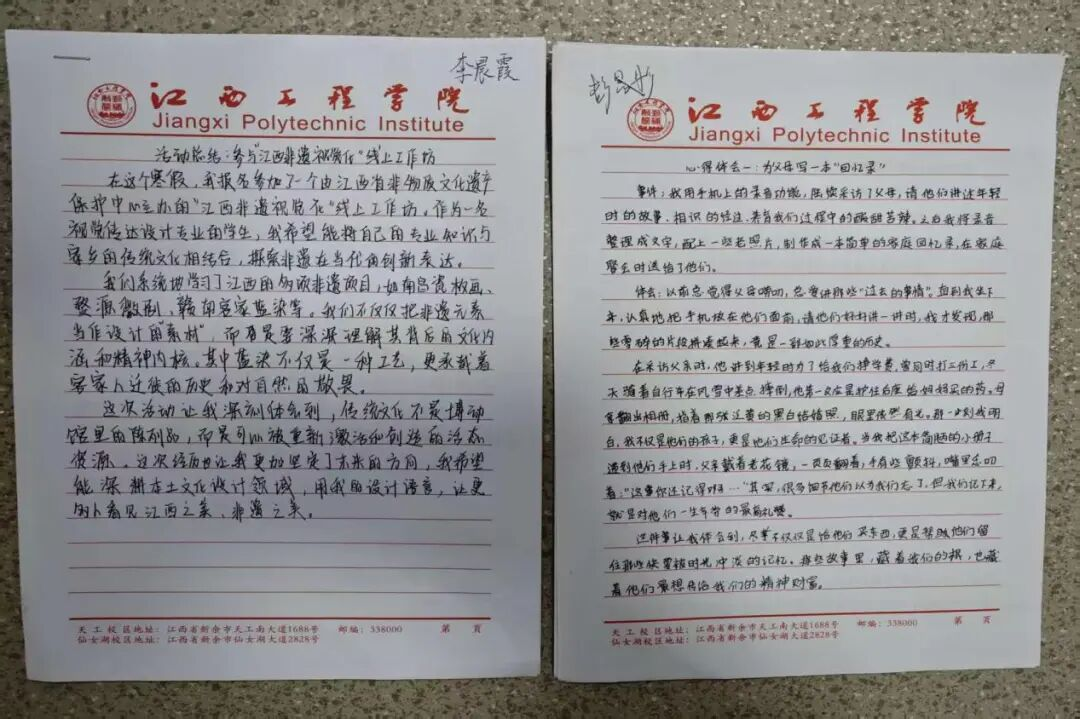 李晨霞
江西工程学院
Jiangxi Polytechnic Institute
活动总结：参与"江西非遗视觉化"线上工作坊
在这个寒假，我报名参加了一个由江西省非物质文化遗产
保护中心主办的"江西非遗视觉化"线上工作坊。作为一名
视觉传达设计专业的学生，我希望能将自己的专业知识与
家乡的传统文化相结合，探索非遗在当代的创新表达。
我们系统地学习了江西的多项非遗项目，如南昌瓷板画、
婺源徽剧、赣南客家蓝染等。我们不仅仅把非遗元素
当作设计的"素材"，而更是要深深理解其背后的文化内
涵和精神内核。其中蓝染不仅是一种工艺，更承载着
客家人迁徙的历史和对自然的敬畏。
这次活动让我深刻体会到，传统文化不是博物
馆里的陈列品，而是可以被重新激活和创造的活态
资源。这次经历也让我更加坚定了未来的方向，我希望
能深耕本土文化设计领域，用我的设计语言，让更
多人看见江西之美、非遗之美。
天工校区地址：江西省新余市天工南大道1688号 邮编：338000 第 页
仙女湖校区地址：江西省新余市仙女湖大道2828号
江西工程学院
Jiangxi Polytechnic Institute
心得体会一：为父母写一本"回忆录"
事件：我用手机上的录音功能，陆续采访了父母，请他们讲述年轻
时的故事、相识的经过、养育我们过程中的酸甜苦辣。之后我将录音
整理成文字，配上一些老照片，制作成一本简单的家庭回忆录，在家庭
聚会时送给了他们。
体会：以前总觉得父母唠叨，总爱讲那些"过去的事情"。直到我坐下
来，认真地把手机放在他们面前，请他们好好讲一讲时，我才发现，那
些零碎的片段拼凑起来，竟是一部如此厚重的历史。
在采访父亲时，他讲到年轻时为了给我们挣学费，曾同时打三份工，冬
天骑着自行车在风雪中差点摔倒，他第一反应是护住后座给妈妈买的药。母
亲翻出相册，指着那张泛黄的黑白结婚照，眼里依然有光。那一刻我明
白，我不仅是他们的孩子，更是他们生命的见证者。当我把这本简陋的小册子
递到他们手上时，父亲戴着老花镜，一页页翻着，手有些颤抖，嘴里念叨
着："这事你还记得啊…"其实，很多细节他们以为我们忘了，但我们记下来，
就是对他们一生辛劳的最高礼赞。
这件事让我体会到，尽孝不仅仅是给他们买东西，更是帮助他们留
住那些快要被时光冲淡的记忆。那些故事里，藏着我们的根，也藏
着他们最想传给我们的精神财富。
天工校区地址：江西省新余市天工南大道1688号 邮编：338000 第 页
仙女湖校区地址：江西省新余市仙女湖大道2828号